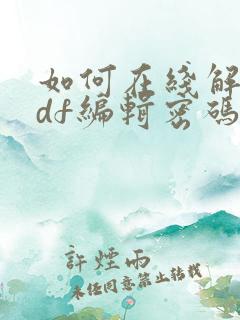 如何在綫解
df編輯密碼
許煙雨
未经同意禁止转载